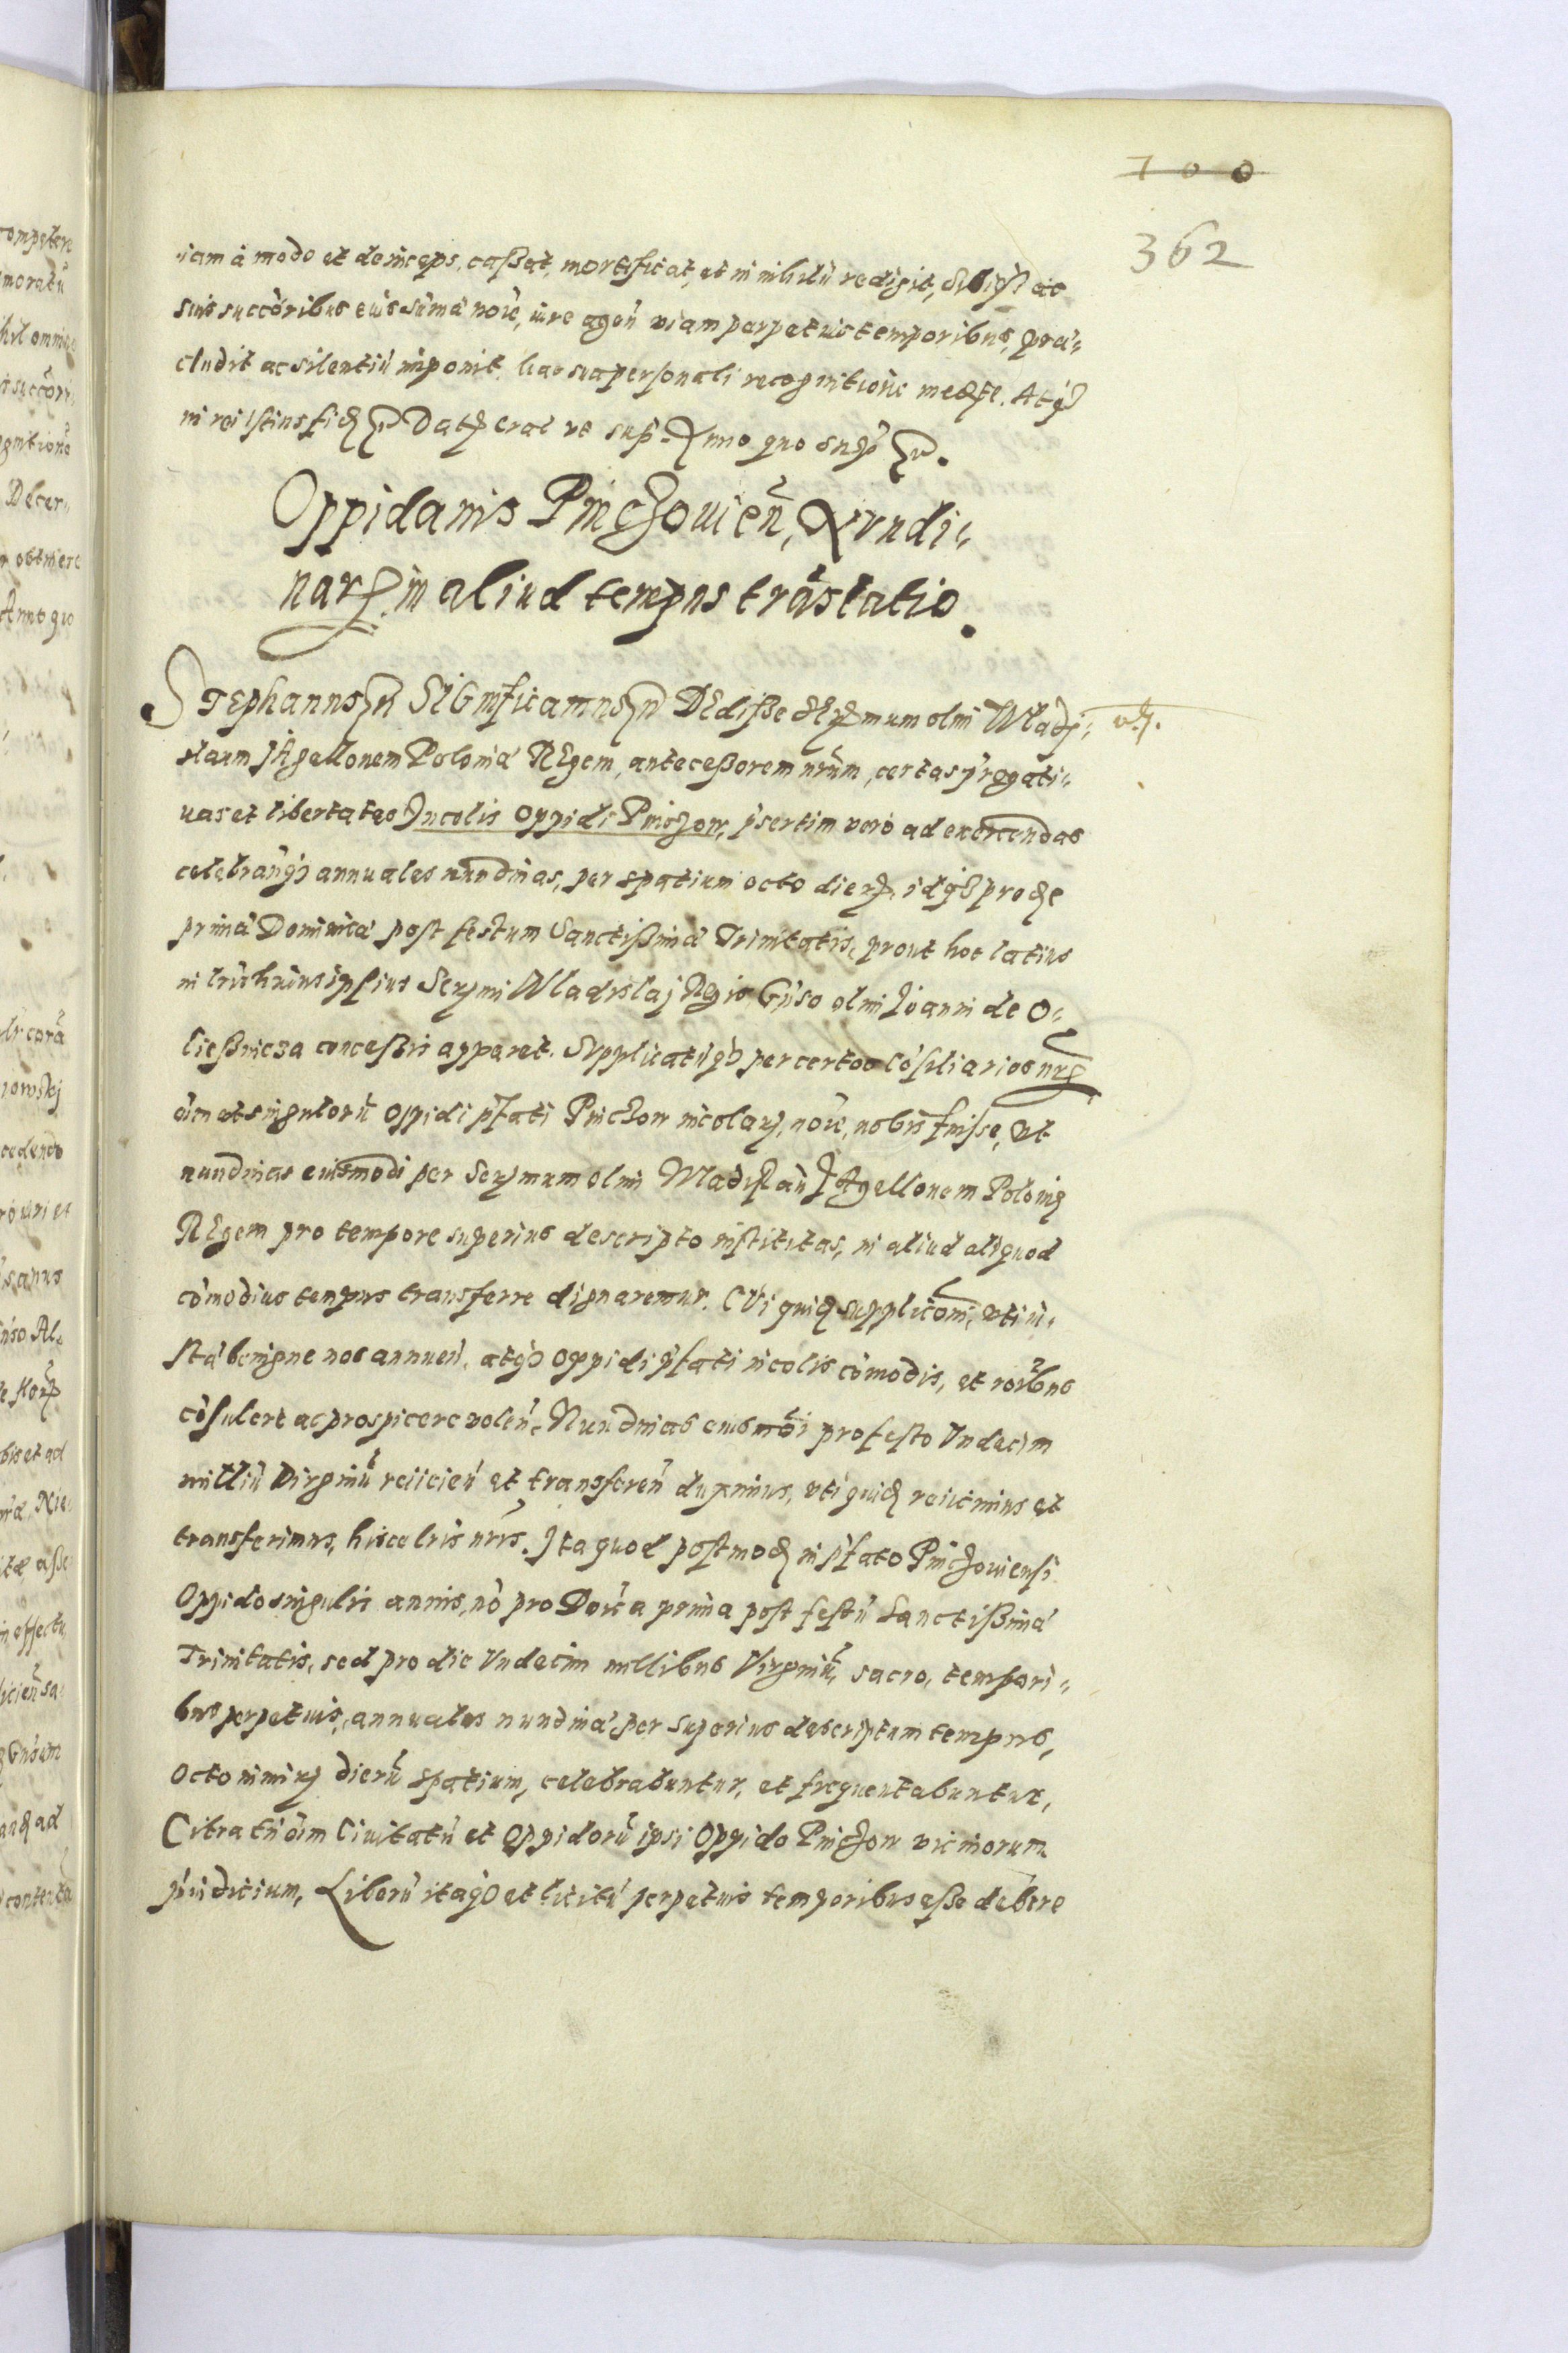 700
362
iam à modo et deinceps, cassat, mortificat, et in nihilũ redigit, Sibiq3 ac
suis succõribus eius sũmæ noĩe, iure ageñ viam perpetuis temporibus, præ„
cludit ac silentiũ imponit hac sua personali recognitione medte. Atq3
in rei istius fidę etc. Datę erat vt sup. Anno quo supra etc.
Oppidanis Pinczouieñ, Nundi„
narę in aliud tempus trãslatio.
STephanus etc Significamus etc DEdisse SErmum olim Wladj„ vf.
slaum JAgellonem Poloniæ REgem, antecessorem nrũm, certas prẽgati„
uas et libertates Incolis Oppidi Pinczow, psertim vero ad exercendas
celebrañq3 annuales nundinas, per spatium octo dierę, idq3 pro die
prima Dominica post festum Sanctissimæ Trinitatis, prout hoc latius
in lris huius ipsius Serymi Wladislaj Regis, Gñso olim Joanni de O„
liessnicza concessis apparet. Supplicatũq3 per certos Cõsiliarios nrõę
õim et singulorũ Oppidi pfati Pinczow incolarę, noĩe, nobis fuisse, Vt
nundinas eiusmodi per Serymum olim Wladislaũ JAgellonem Polonię
REgem pro tempore superius descripto institutas, in aliud aliquod
cõmodius tempus transferre dignaremur. CVi quidę supplicõni, vti iu„
stæ benigne nos annueñ, atq3 Oppidi pfati incolis cõmodis, et rõibus
cõsulere ac prospicere voleñ. Nundinas eiusmõi pro festo Vndecim
milliũ Virginũ reiicieñ et transfereñ duximus, vti quidę reiicimus et
transferimus, hisce lris nris. Ita quod postmodę in pfato Pinczouiensi
Oppido singulis annis, nõ pro Dõica prima post festũ Sanctissimæ
Trinitatis, sed pro die Vndecim millibus Virginũ, sacro, tempori„
bus perpetuis, annuales nundinæ per superius descriptum tempus,
Octo nimirę dierũ spatium, celebrabuntur, et frequentabuntur,
Citra tñ õim Ciuitatũ et Oppidorũ ipsi Oppido Pinczow vicinorum
piudicium, Liberũ itaq3 et licitũ perpetuis temporibus esse debere